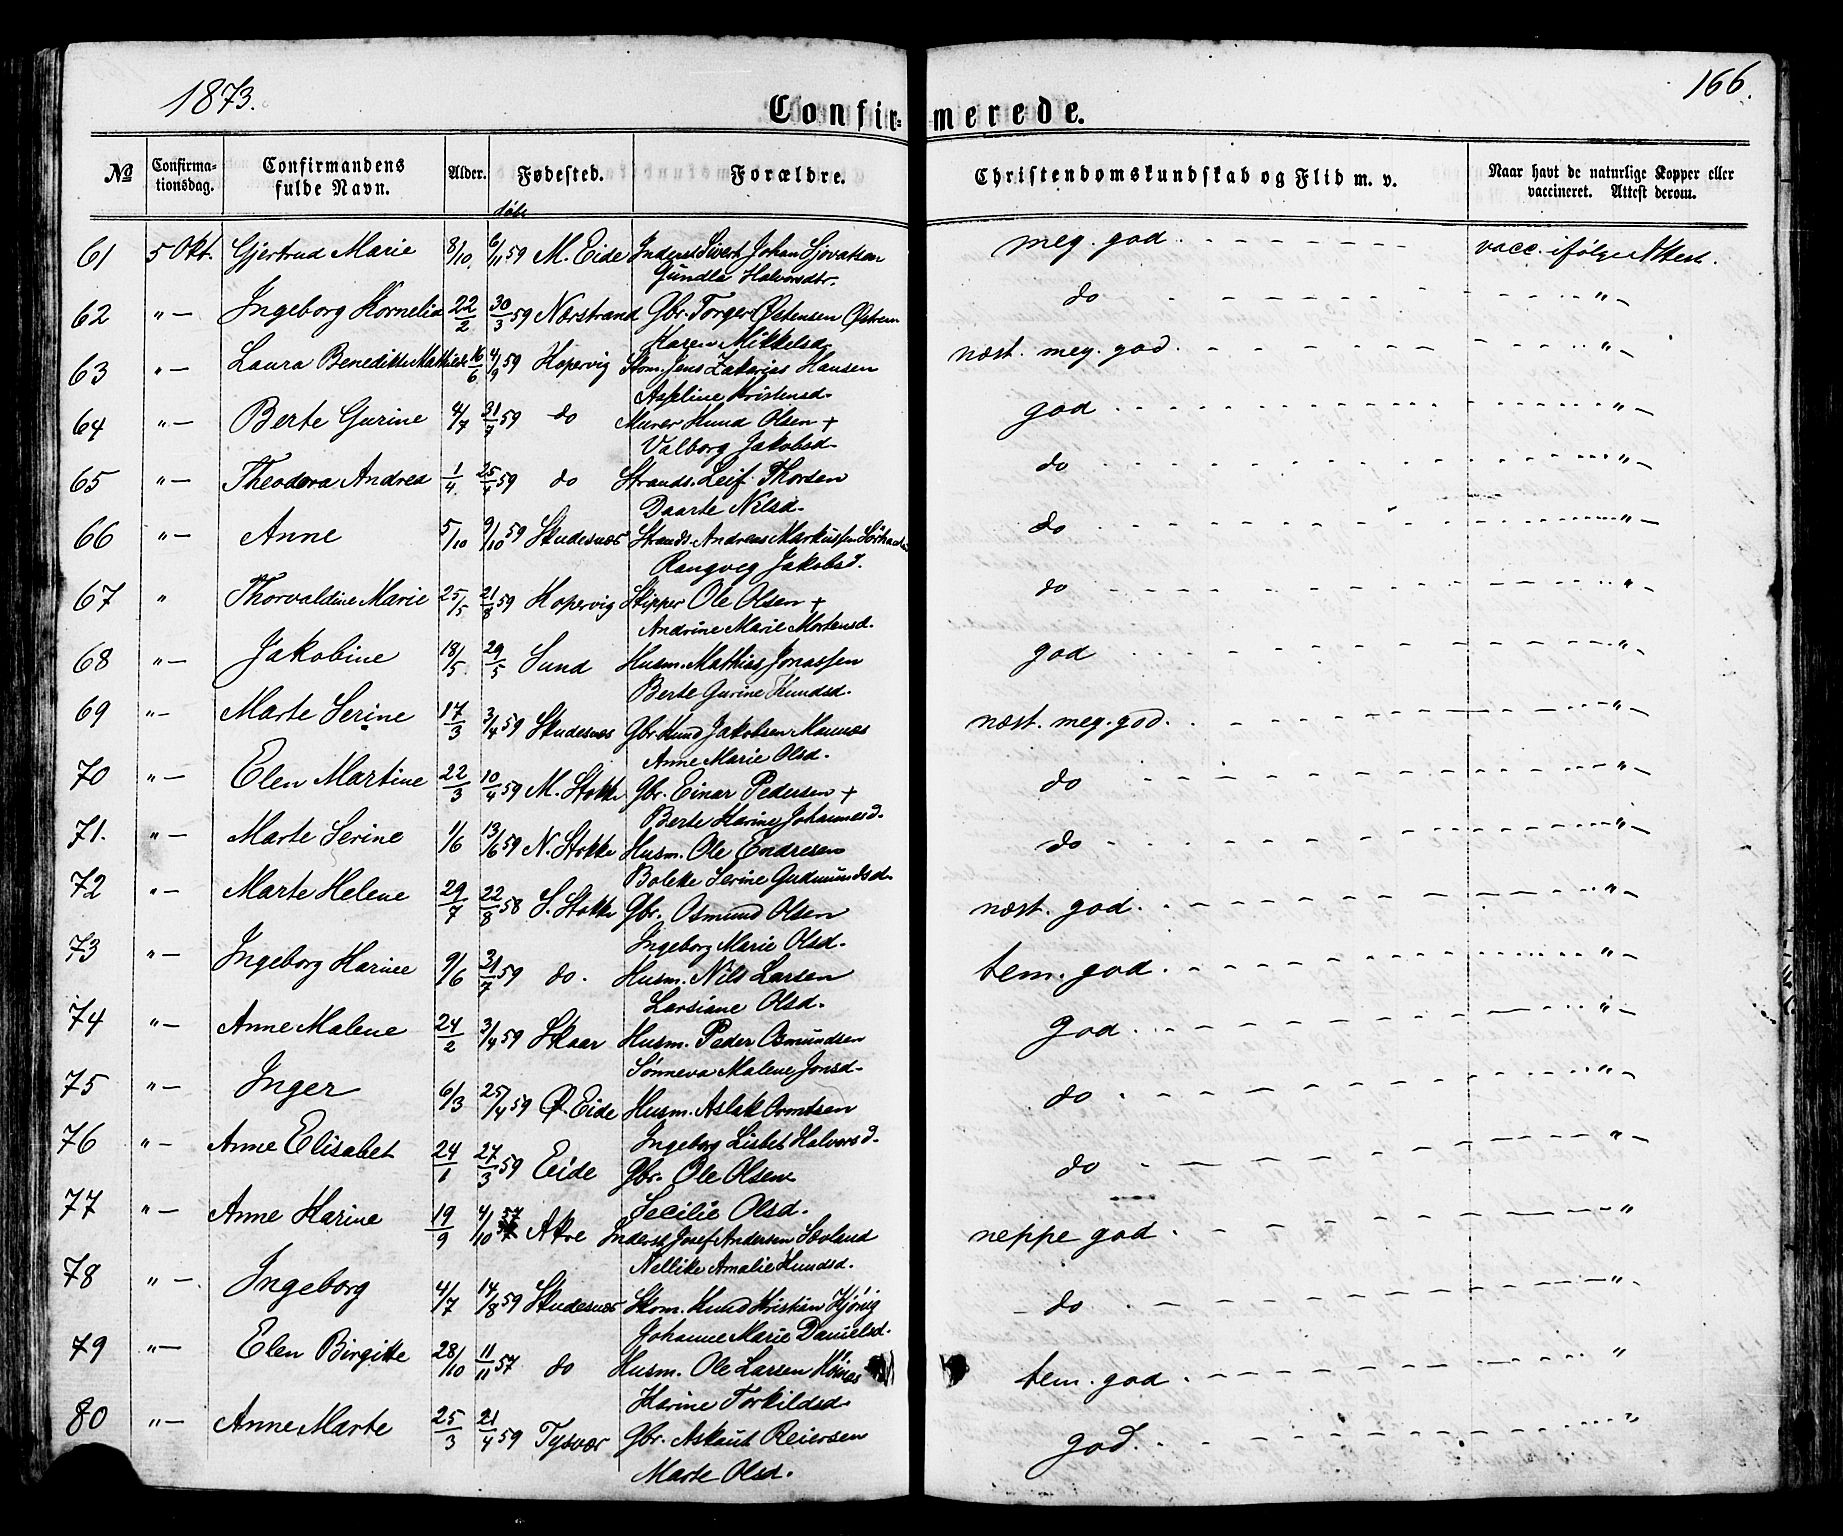 1873.
166.
Confir- merede.
No Confirma-tionsdag. Confirmandens fulde Navn. Alder. Fødested. Forældre. Christendomskundskab og Flid m. v. Naar havt de naturlige Kopper eller vaccineret. Attest derom.
døbt
61 5 Okt. Gjertrud Marie 8/10. 6/11 59 M. Eide Inderst Sivert Johan Sjovatsen meg. god - - - vacc. ifølge Attest.
Gundla Halvorsdtr.
62 " — Ingeborg Kornelia 22/2 30/3 59 Nærstrand Gbr. Torger Østensen Østrem do - - - " —
Karen Mikkelsd.
63 " — Laura Benedikte Mathilde 16/6 4/9 59 Kopervig Skom. Jens Zakarias Hansen næst. meg. god - - - " —
Aspline Kristensd.
64 " — Berte Gurine 4/7 31/7 59 do Murer Knud Olsen + god - - - " —
Valborg Jakobsd.
65 " — Theodora Andrea 1/4. 25/4 59 do Strands. Leif Thorsen do - - - " —
Daarte Nilsd.
66 " — Anne 5/10 9/10 59 Skudesnæs Strands. Andreas Markussen do - - - " —
Rangveg Jakobsd.
67 " Thorvaldine Marie 25/5 21/8 59 Kopervig Skipper Ole Olsen + do - - - "
Andrine Marie Mortensd.
68 " — Jakobine 18/5 29/5 Sund Husm. Mathias Jonassen god - - - " —
Berte Gurine Knudsd.
69 " — Marte Serine 17/3 3/4 59 Skudesnæs Gbr. Knud Jakobsen Mannæs næst. meg. god. - - - " —
Anne Marie Olsd.
70 " — Elen Martine 22/3 10/4 59 M. Stokke Gbr. Einar Pedersen + do - - - " —
Berte Karine Johannesd.
71. " — Marte Serine 1/6 13/6 59 N. Stokke Husm. Ole Endresen do - - - " —
Bolette Serine Gudmundsd.
72 " — Marte Helene 29/7 22/8 58 S. Stokke Gbr. Osmund Olsen næst. god. - - - " —
Ingeborg Marie Olsd.
73 " — Ingeborg Karine 9/6 31/7 59 do. Husm. Nils Larsen tem. god. - - - " —
Larsiane Olsd.
74 " — Anne Malene 24/2 3/4 59 Skaar Husm. Peder Osmundsen god. - - - " —
Sønneva Malene Jonsd.
75 " — Inger 6/3 25/4 59 Ø. Eide Husm. Aslak Arntsen do. - - - " —
Ingeborg Lisbet Halvorsd.
76 " — Anne Elisabet 24/1 27/3 59 Eide Gbr. Ole Olsen do - - - " —
Secilie Olsd.
77 " — Anne Karine 19/9 4/10 57 Akre Inderst Josef Andersen Sævland neppe god. - - - "
Nellike Amalie Knudsd.
78 " — Ingeborg 4/7 14/8 59 Skudesnæs Skom. Knud Kristian do - - - " —
Johanne Marie Danielsd.
79 " — Elen Birgitte 28/10 11/11 57 do Husm. Ole Larsen tem. god - - - "
Karine Torkildsd.
80 " — Anne Marte 25/3 21/4 59 Tysvær Gbr. Askaut Reiersen god. - - - "
Marte Olsd.